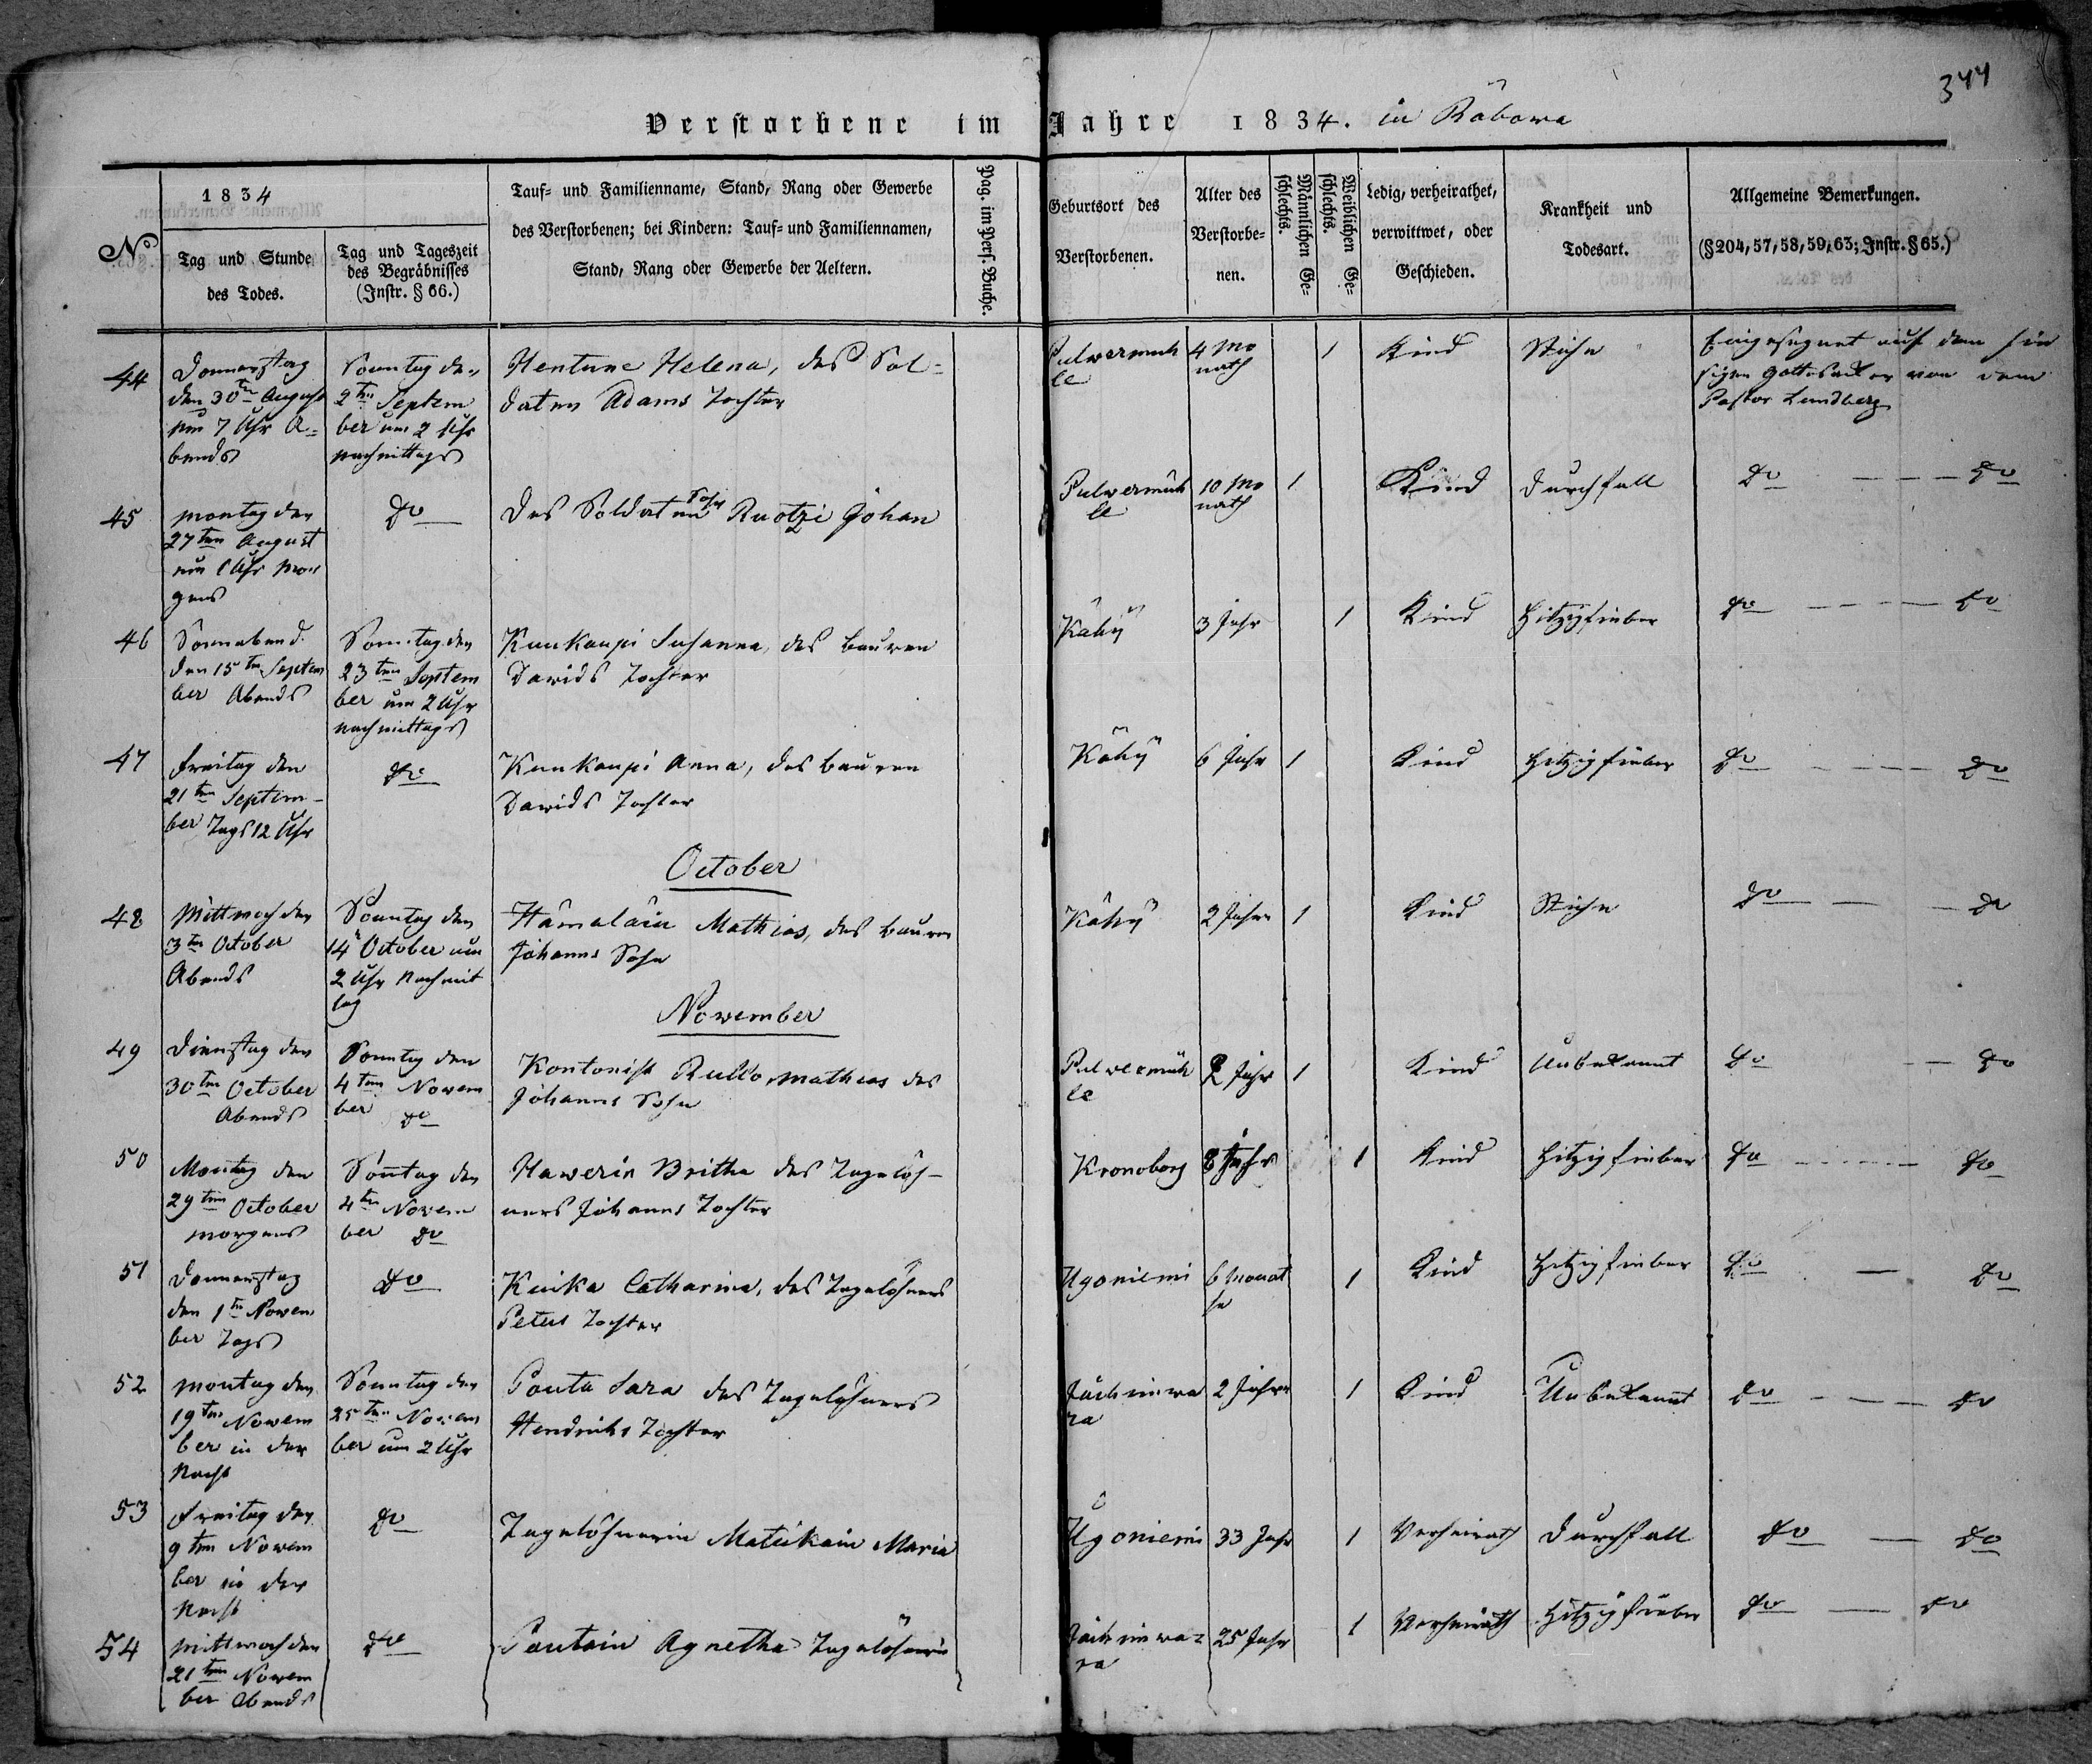 344
Verstorbene im Jahre 1834. in Räbowa
No
1834
Tag und Stunde
des Todes.
Tag und Tageszeit
des Begräbnisses
(Instr. § 66.)
Tauf= und Familienname, Stand, Rang oder Gewerbe
des Verstorbenen; bei Kindern: Tauf= und Familiennamen,
Stand, Rang oder Gewerbe der Aeltern.
Pag. im Pers. Buche.
Geburtsort des
Verstorbenen.
Alter des
Verstorbe-
nen.
Männlichen Ge-
schlechts.
Weiblichen Ge-
schlechts.
Ledig, verheirathet,
verwittwet, oder
Geschieden.
Krankheit und
Todesart.
Allgemeine Bemerkungen.
(§ 204, 57, 58, 59, 63; Instr. § 65.)
44
Donnerstag
den 30ten August
um 7 Uhr A=
bends
Sonntag den
2ten Septem
ber um 2 Uhr
nachmittags
Hentune Helena, des Sol=
daten Adams Tochter
Pulwermuh
le
4 Mo
nath
1
Kind
Stiche
Eingesegnet auf dem hie
sigen Gottesacker von dem
Pastor Lundberg
45
Montag den
27ten August
um 1 Uhr Mor
gens
do
Des Soldaten Sohn Ruotzi Johan
Pulwermüh
le
10 Mo
nath
1
Kind
Durchfall
do — — — do
46
Sonnabend
den 15ten Septem
ber Abends
Sonntag den
23ten Septem
ber um 2 Uhr
nachmittags
Kunkaupi Susanna, des Bauren
Dawids Tochter
Kähÿ
3 Jahr
1
Kind
Hitzigfieber
do — — — do
47
Freitag den
21ten Septem-
ber Tags 12 Uhr
do
Kunkaupi Anna, des Bauren
Dawids Tochter
Kähÿ
6 Jahr
1
Kind
Hitzigfieber
do — — — do
October
48
Mittwoch den
3ten October
Abends
Sonntag den
14 October um
2 Uhr Nachmit
tag
Hämäläin Mathias, des Bauren
Johanns Sohn
Kähÿ
2 Jahre
1
Kind
Stiche
do — — do
November
49
Dienstag den
30ten October
Abends
Sonntag den
4ten Nowem
ber do
Kontonist Rullo Mathias des
Johanns Sohn
Pulwermüh
le
2 Jahr
1
Kind
Unbekannt
do — do
50
Montag den
29ten October
Morgens
Sonntag den
4ten Nowem
ber do
Hawerin Britha des Tagelöh-
ners Johanns Tochter
Kronoborg
8 Jahr
1
Kind
Hitzigfieber
do — — do
51
Donnerstag
den 1ten Nowem
ber Tags
do
Kuika Catharina, des Tagelöhners
Peters Tochter
Ugoniemi
6 Monat
he
1
Kind
Hitzigfieber
do — do
52
Montag den
19ten Nowem
ber in der
Nacht
Sonntag den
25ten Nowem
ber um 2 Uhr
Pouta Sara des Tagelöhners
Hendricks Tochter
ra
2 Jahre
1
Kind
Unbekannt
do — — do
53
Freitag den
9ten Nowem
ber in der
Nacht
do
Tagelöhnerin Matukain Maria
Ugoniemi
33 Jahr
1
Verheirath
Durchfall
do — do
54
Mittwoch den
21ten Nowem
ber Abends
do
Poutain Agnetha Tagelöhnerin
ra
25 Jahr
1
Verheirath
Hitzigfieber
do — do